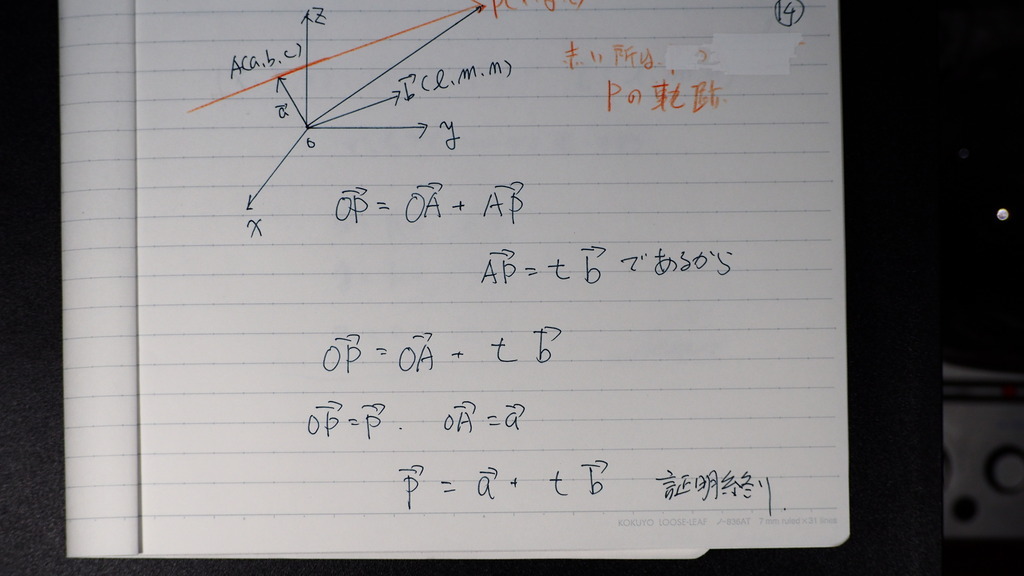 Z
⑭
A(a.b.c)
赤い所は
b(l.m.n)
Pの軌跡
a
o
y
x
OP = OA + AP
AP = t b であるから
OP = OA + t b
OP = P . OA = a
P = a + t b 証明終り
KOKUYO LOOSE-LEAF ノ-836AT 7 mm ruled×31 lines